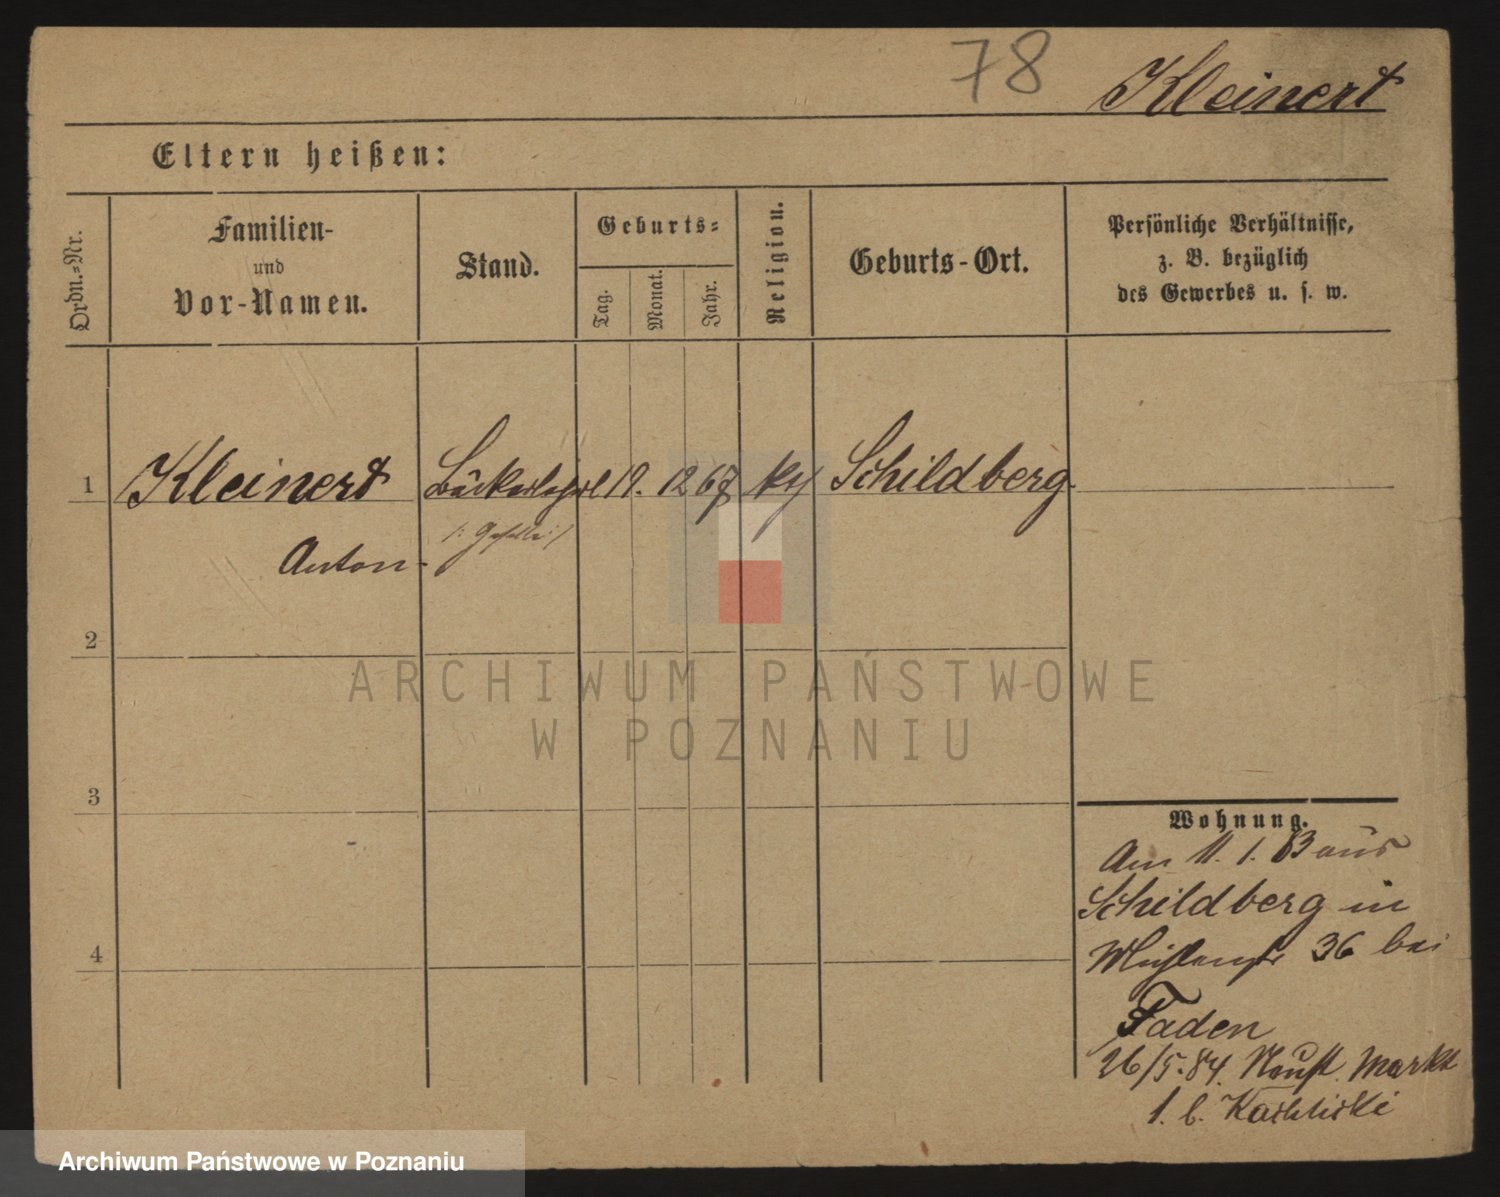 78 Kleinert
Eltern heißen:
Ordn.-Nr.
Familien-
und
Vor-Namen.
Stand.
Geburts-
Tag.
Monat.
Jahr.
Religion.
Geburts-Ort.
Persönliche Verhältnisse,
z. B. bezüglich
des Gewerbes u. s. w.
1 Kleinert 19. 12 67 Schildberg
Anton
2
3
4
Wohnung.
Am 11. 1. 83 aus
Schildberg in
Mühlenstr 36 bei
Faden
26/5. 84. Neust. Markt
1. b.
ARCHIWUM PAŃSTWOWE
W POZNANIU
Archiwum Państwowe w Poznaniu